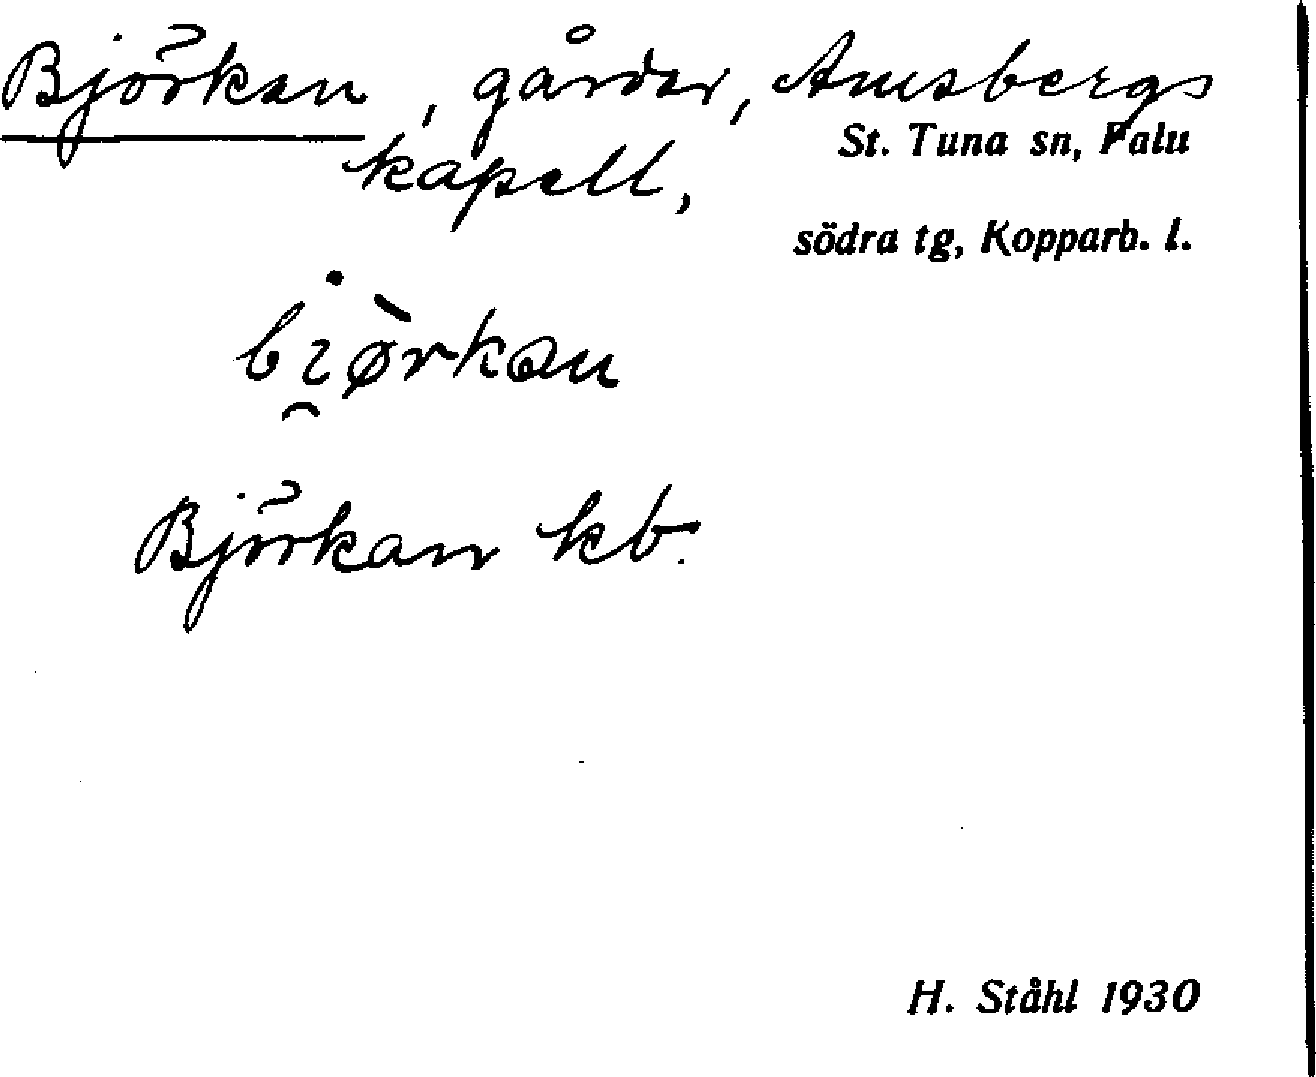 Björkan, gårdar, Amsbergs
kapell,
St. Tuna sn, Falu
södra tg, Kopparb. l.
bi̯ø̀rkan
Björkan kb.
H. Ståhl 1930